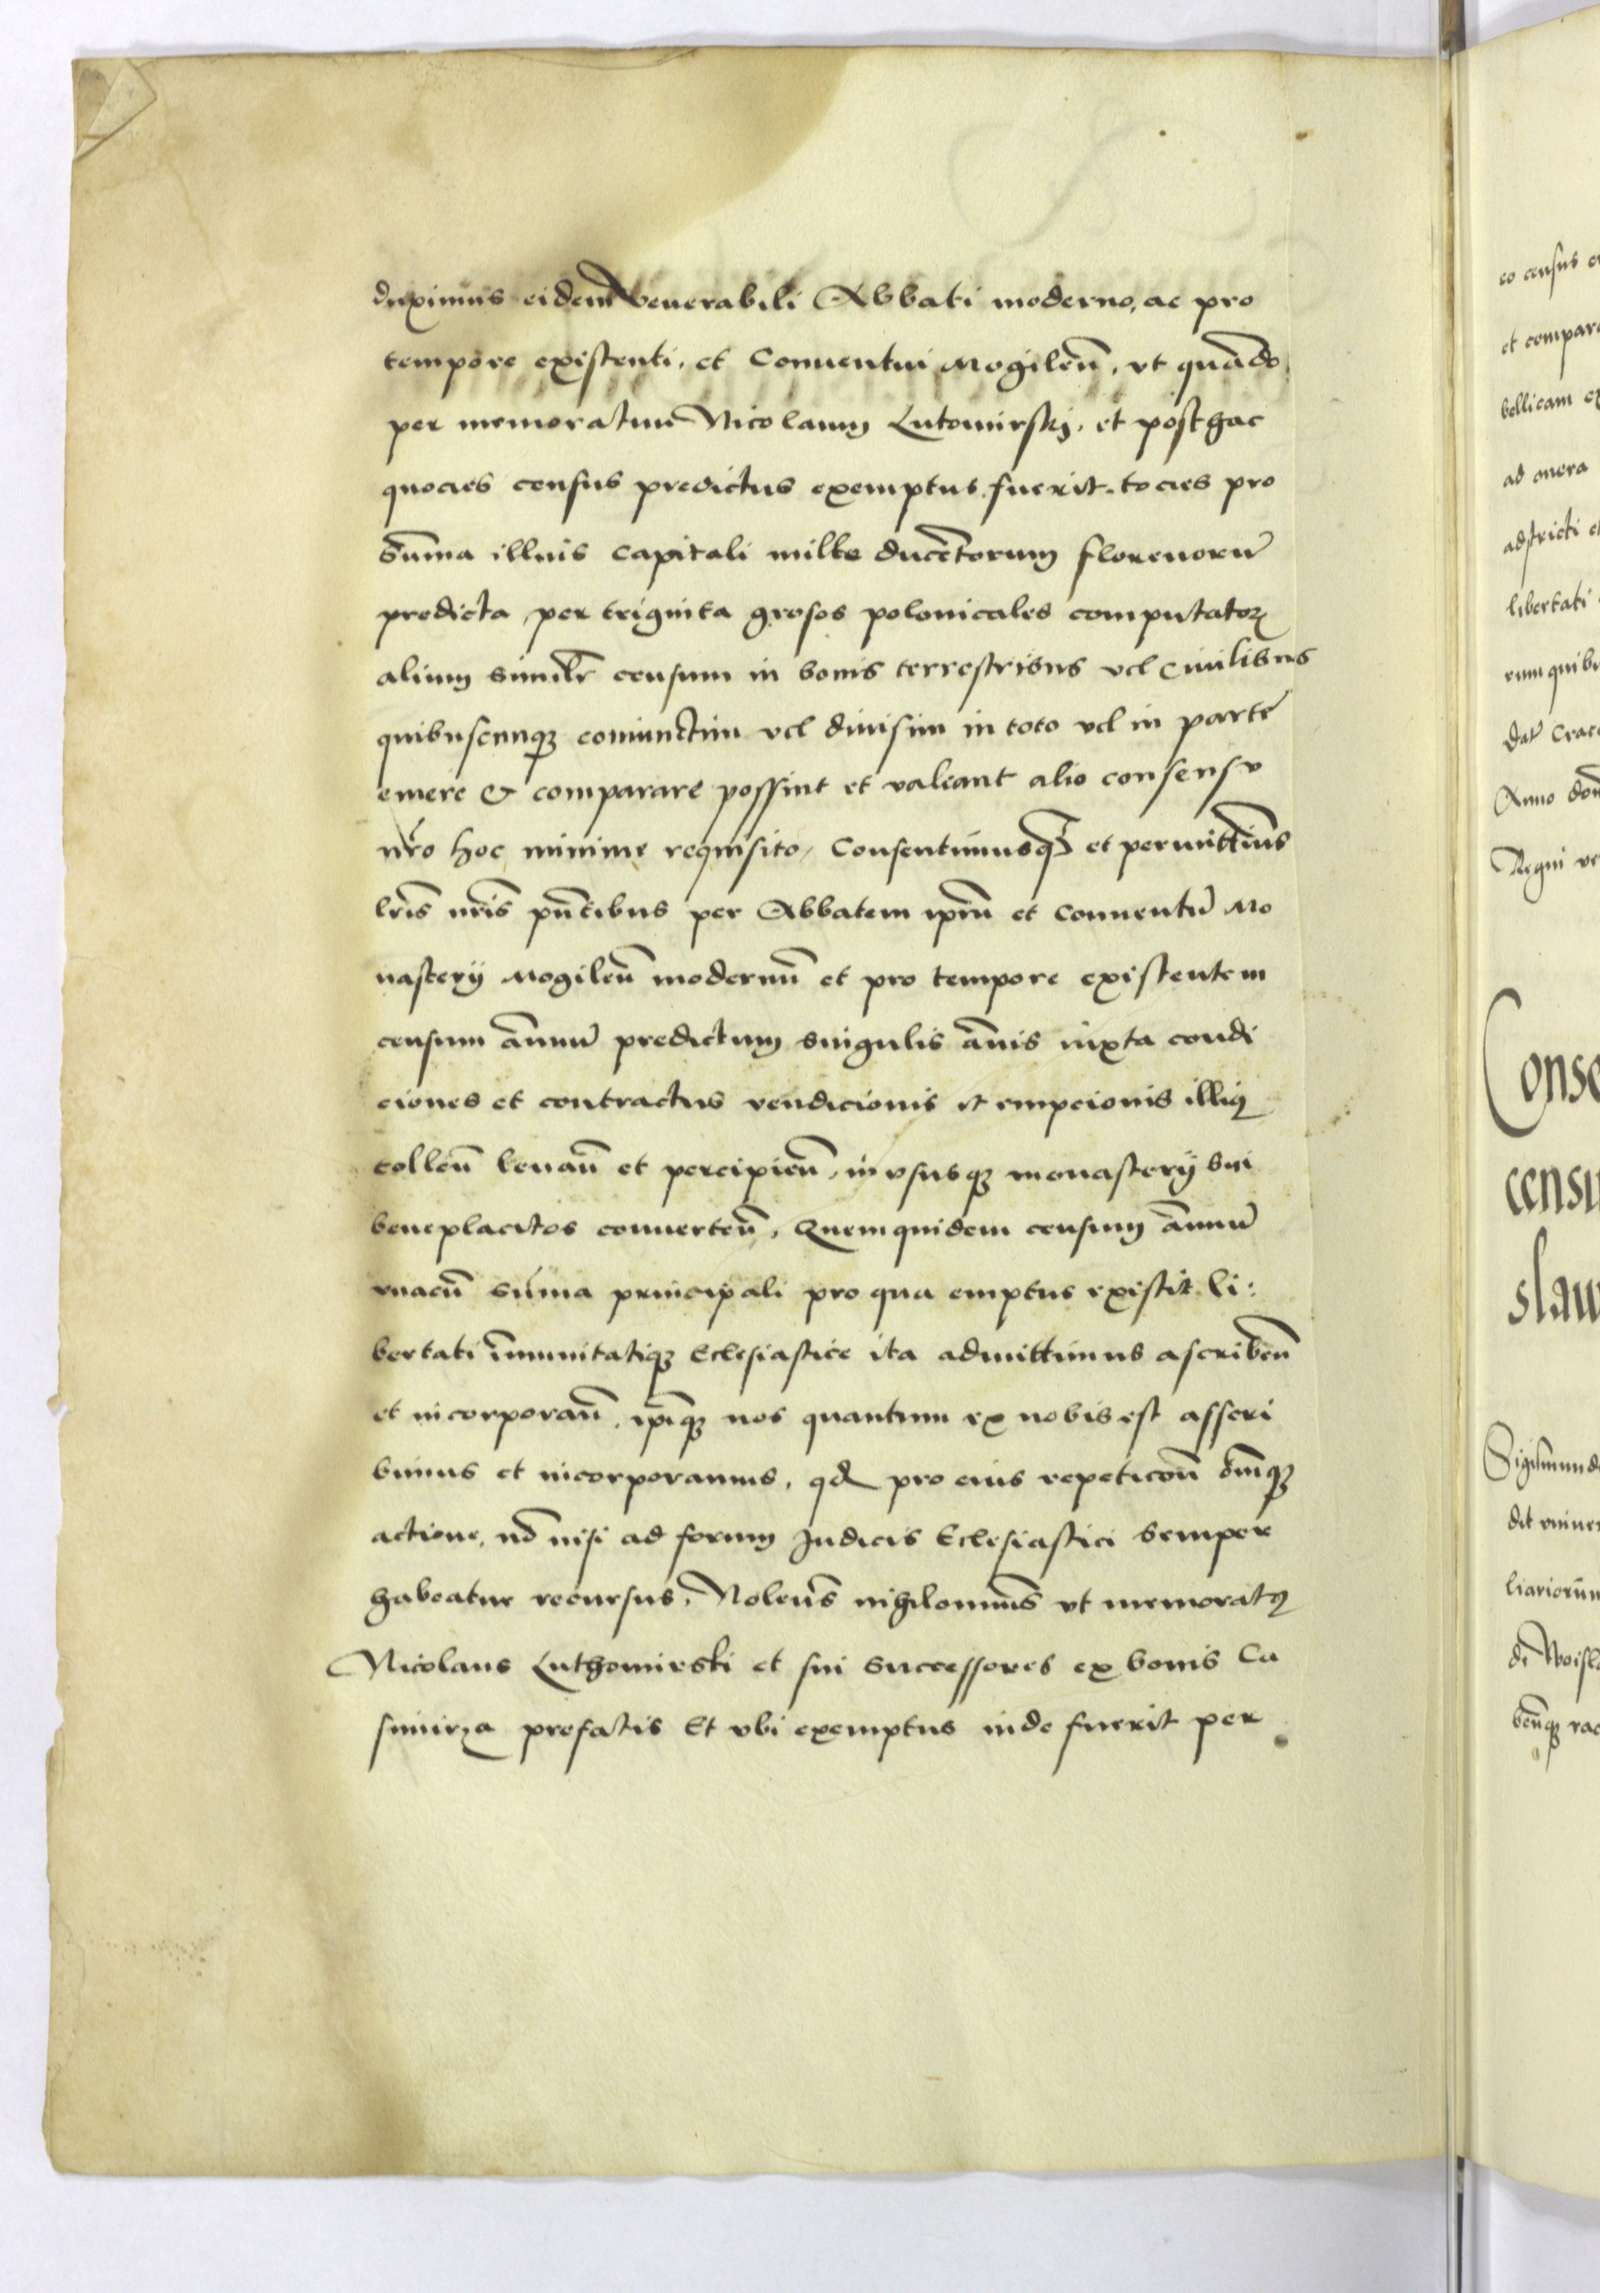 duximus eidem Venerabili Abbati moderno, ac pro
tempore existenti, et Conuentui Mogileñ, vt quãdo
per memoratum Nicolaum Lutomirskj, et posthac
quocies census predictus exemptus fuerit, tocies pro
Sũma illius Capitali mille ducẽtorum florenorũ
predicta, per triginta grosos polonicales computatoꝝ
alium similẽ censum in bonis terrestribus vel Ciuilibus
quibuscunqꝫ coniunctim vel diuisim in toto vel in parte
emere & comparare possint et valeant alio consensu
nr̃o hoc minime requisito, Consentimusqꝫ et permittim̃s
lr̃is nr̃is pñtibus per Abbatem ipm̃ et Conuentũ Mo
nasterij Mogileñ modernũ et pro tempore existentem
censum ãnuũ predictum singulis ãnis iuxta condi
ciones et contractus vendicionis et empcionis illiꝰ
tolleñ leuañ et percipieñ, in vsusqꝫ monasterij sui
beneplacitos conuerteñ, Quemquidem censum ãnuũ
vnacũ sũma principali pro qua emptus existit li:
bertati ĩmunitatiqꝫ Eclesiastice ita admittimus ascribeñ
et incorporañ, ip̃iqꝫ nos quantum ex nobis est asscri
bimus et incorporamus, qđ pro eius repeticõñ om̃iqꝫ
actione, nõ nisi ad forum Judicis Eclesiastici semper
habeatur recursus, Noleñs nihilomin̄s vt memoratꝰ
Nicolaus Luthomirski et sui successores ex bonis Ca
simirza prefatis Et vbi exemptus inde fuerit per
eo census
et compara
bellicam ex
ad onera
adstricti et
libertati
rum quibu
Dat̃ Craco
Anno doñ
Regni
Conse
censu
slaw
Sigismund
dit vniuer
liariorum
de Woisla